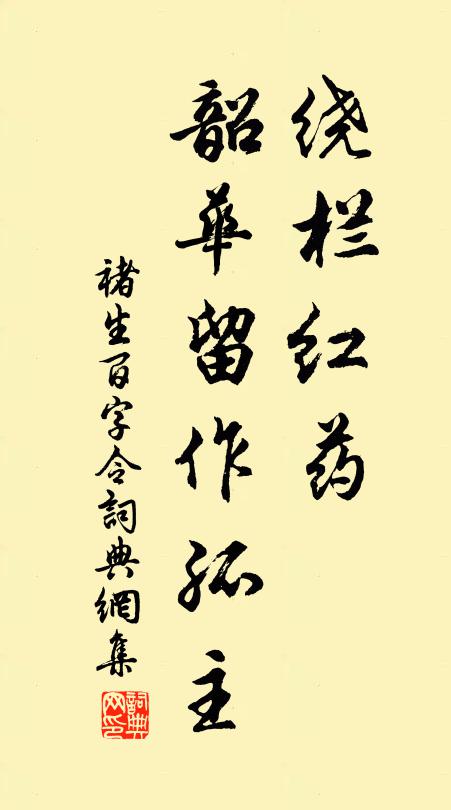 绕栏红药
韶华留作孤主
褚生百字令詞典網集
詞典网印